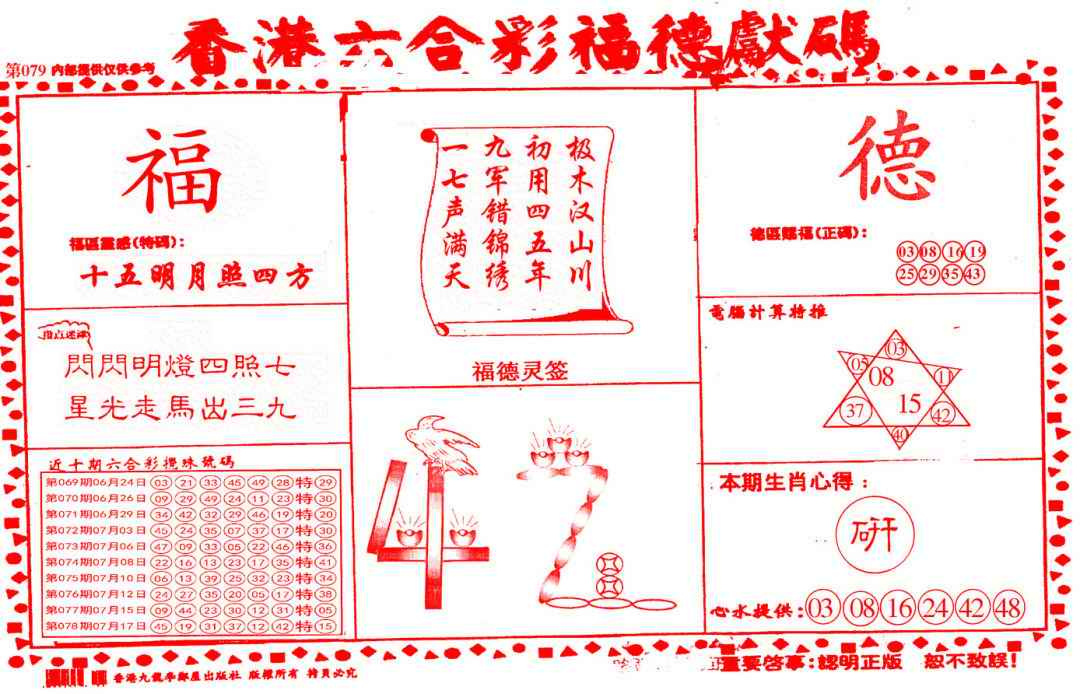 香港六合彩福德獻碼
第079 内部提供仅供参考
福
福區靈感(特碼):
十五明月照四方
指点迷津
閃閃明燈四照七
星光走馬出三九
近十期六合彩攪珠號碼
第069期06月24日 03 21 33 45 49 28 特 29
第070期06月26日 09 29 49 24 11 23 特 30
第071期06月29日 34 42 32 29 46 19 特 20
第072期07月03日 45 24 35 07 37 17 特 30
第073期07月06日 47 09 33 05 22 46 特 36
第074期07月08日 22 16 13 23 17 35 特 41
第075期07月10日 06 13 39 25 32 23 特 34
第076期07月12日 24 27 35 20 05 17 特 38
第077期07月15日 09 44 23 30 12 31 特 05
第078期07月17日 45 19 31 37 12 42 特 15
极木汉山川
初用四五年
九军错锦绣
一七声满天
福德灵签
德
德區賜福(正碼):
03 08 16 19
25 29 35 43
電腦計算特推
03
05 08 11
37 15 42
40
本期生肖心得:
研
心水提供:03 08 16 24 42 48
香港九龍 出版社 版權所有
重要啓事:認明正版 恕不致誤!